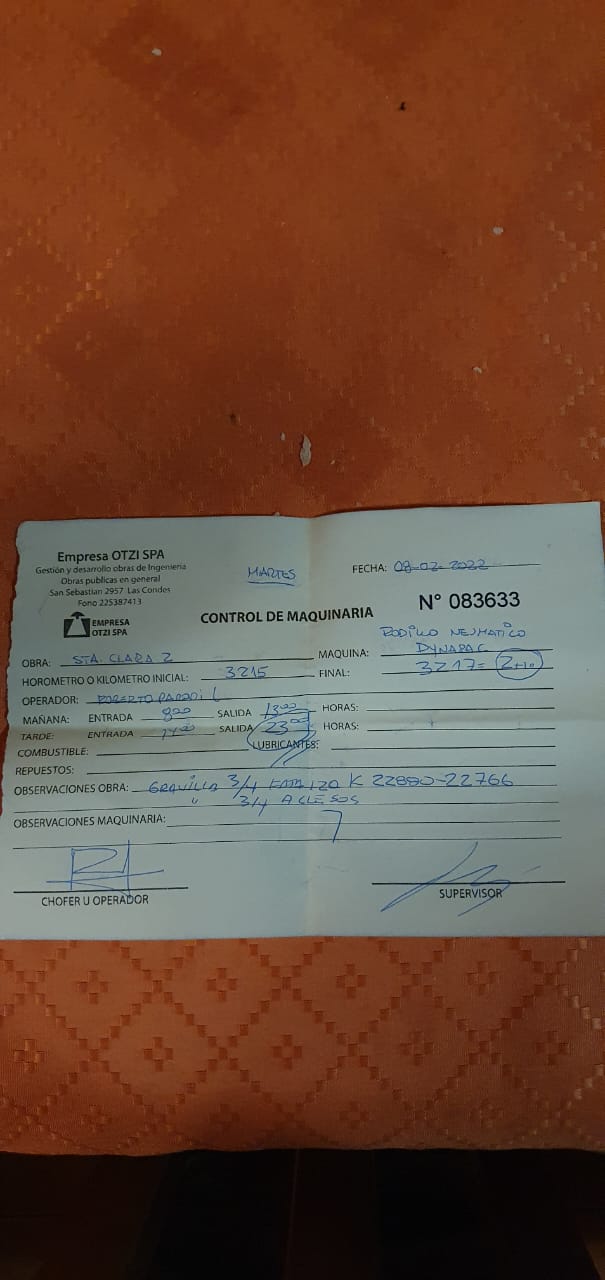 Empresa OTZI SPA
Gestión y desarrollo obras de Ingenieria
Obras publicas en general
San Sebastian 2957 Las Condes
Fono 225387413
EMPRESA
OTZI SPA
MARTES
FECHA: 08-02-2022
CONTROL DE MAQUINARIA
N° 083633
RODILLO NEUMATICO
OBRA: STA. CLARA 2 MAQUINA: DYNAPAC
HOROMETRO O KILOMETRO INICIAL: 3215 FINAL: 3217=
OPERADOR: ROBERTO
MAÑANA: ENTRADA 8:00 SALIDA 13:00 HORAS:
TARDE: ENTRADA 14:00 SALIDA 23:00 HORAS:
COMBUSTIBLE: LUBRICANTES:
REPUESTOS:
OBSERVACIONES OBRA: GRAVILLA 3/4 K 22880-22766
" 3/4
OBSERVACIONES MAQUINARIA:
CHOFER U OPERADOR
SUPERVISOR